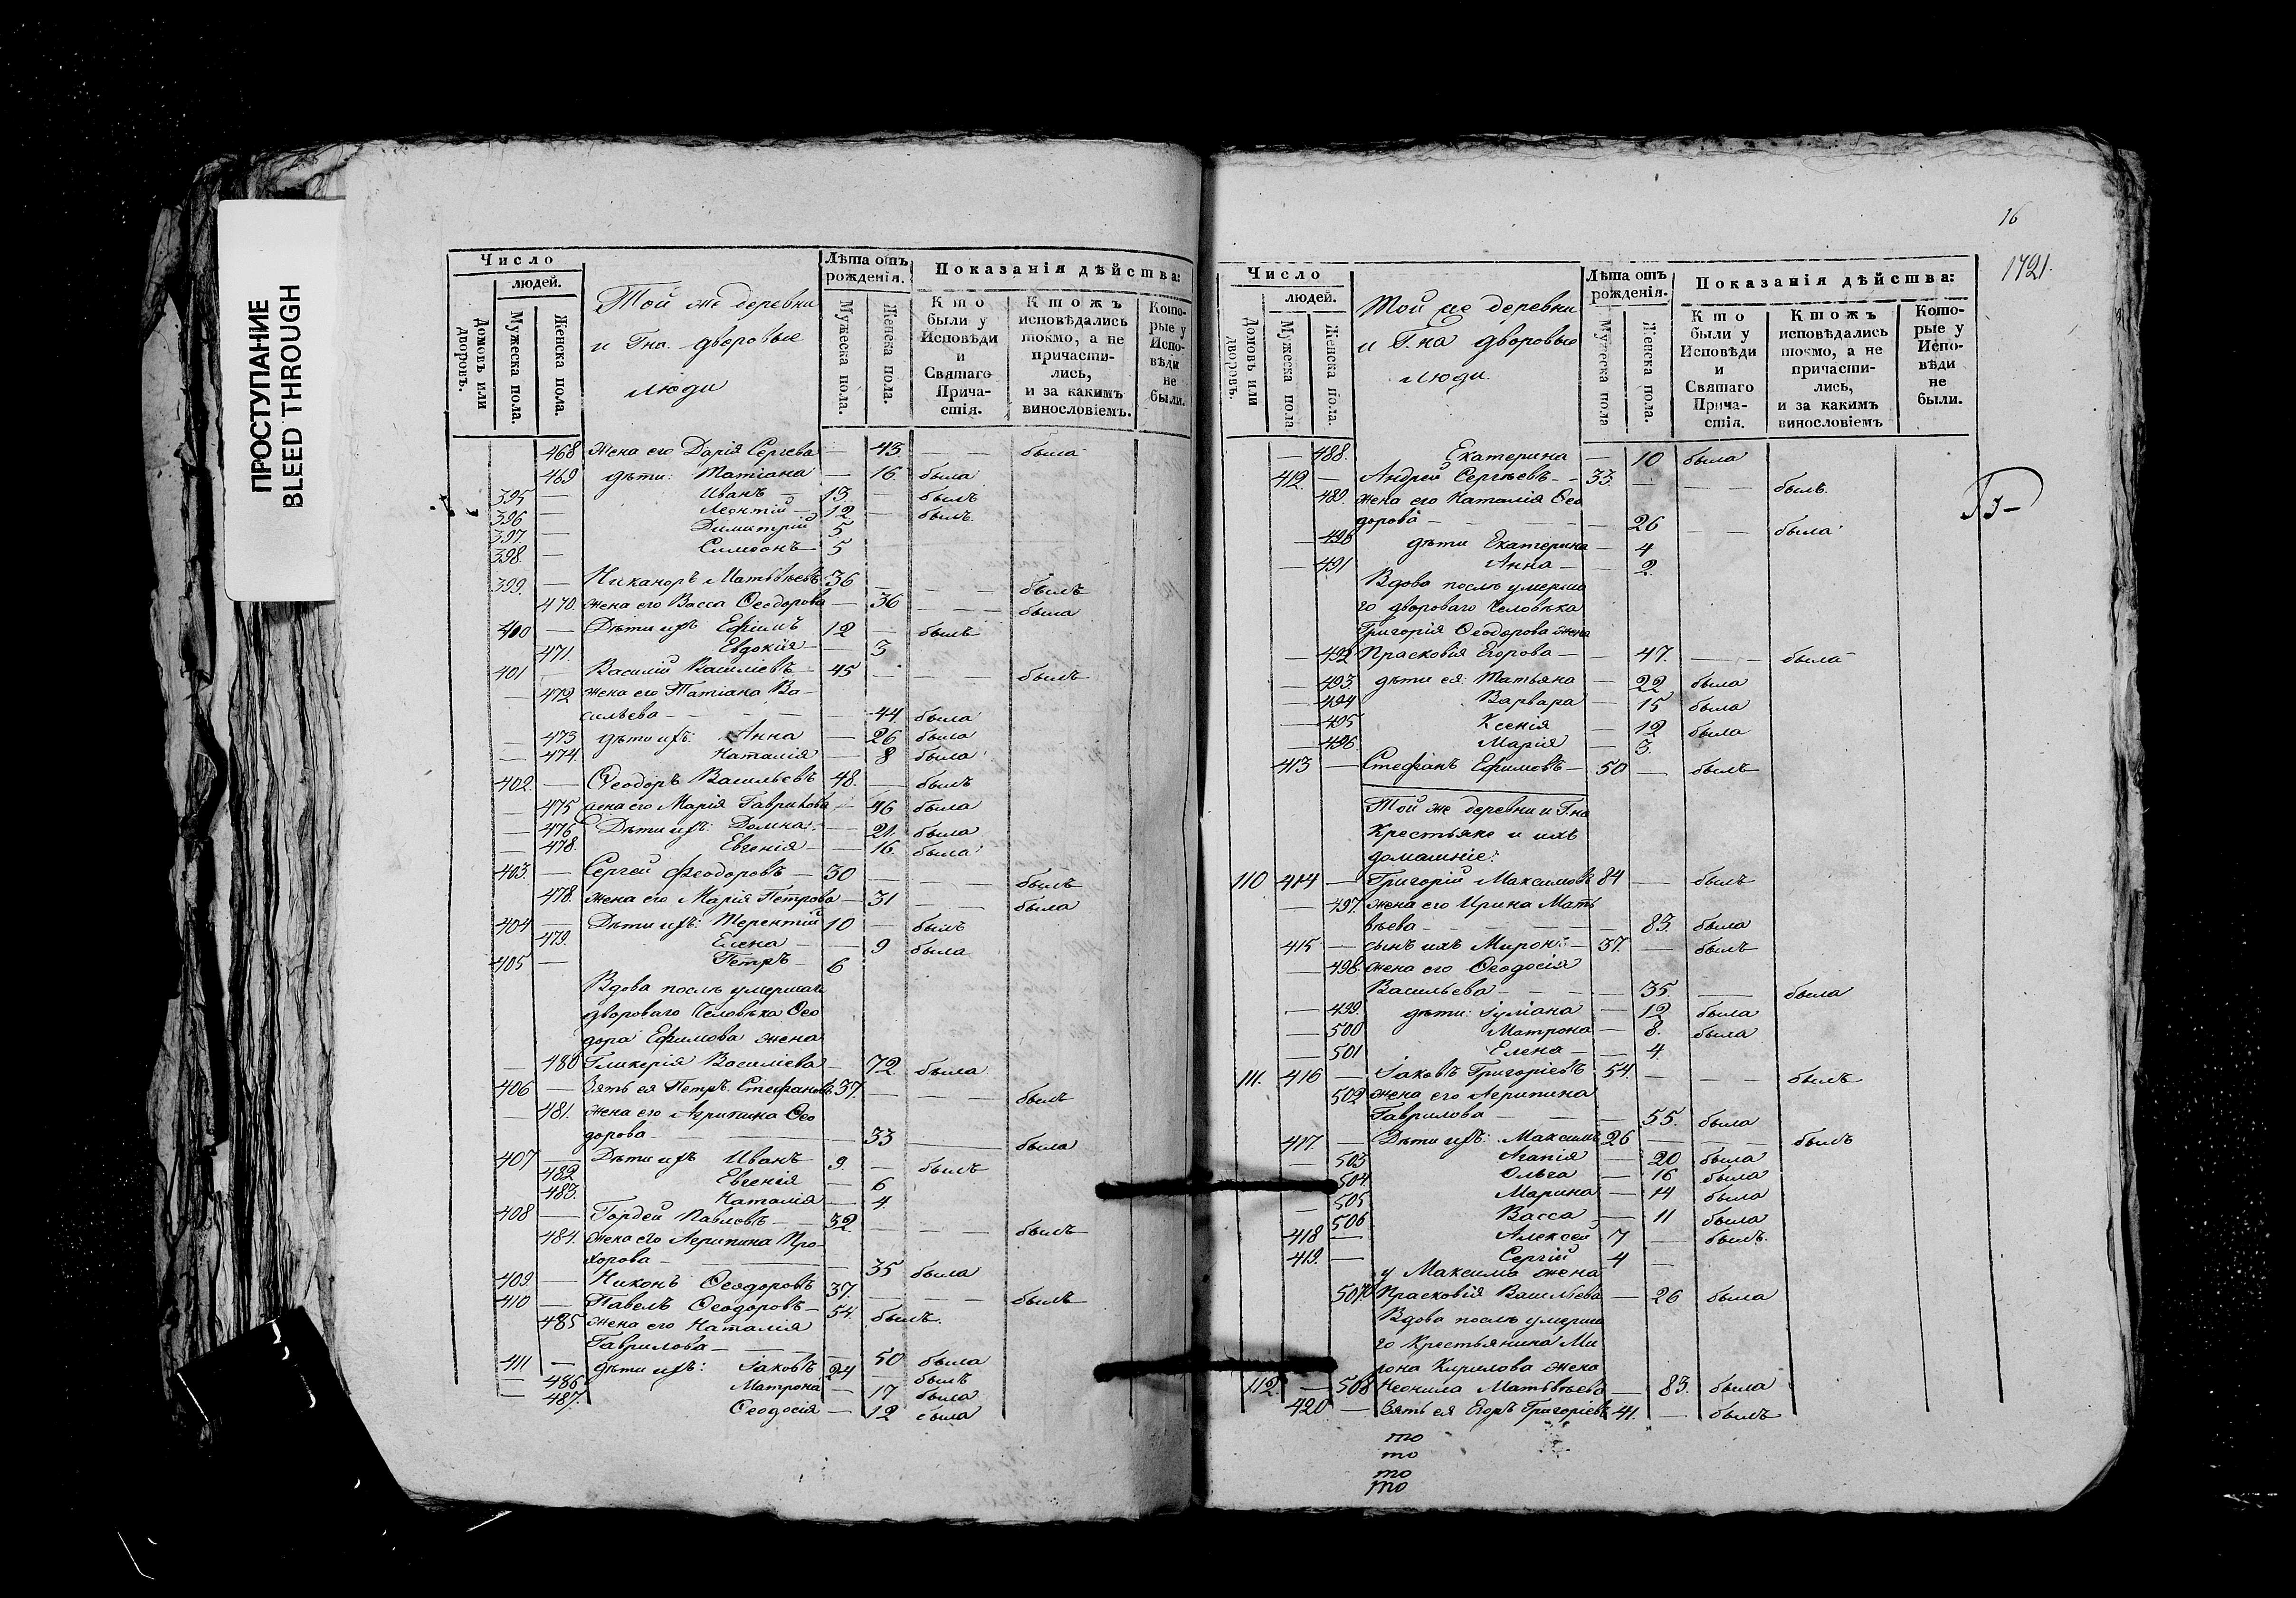 ПРОСТУПАНИЕ
BLEED THROUGH
Число
людей.
Домовъ или дворовъ.
Мужеска пола.
Женска пола.
Той же деревни
и Гна. дворовые
люди
Лѣта отъ рожденія.
Мужеска пола.
Женска пола.
Показанія дѣйства:
Кто были у Исповѣди и Святаго Причастія.
Ктожъ исповѣдались токмо, а не причастились, и за какимъ винословіемъ.
Которые у Исповѣди не были.
468 жена его Дарія Сергѣева — 43 — — была
469 дѣти: Татіана — 16. была
395 — Иванъ — 13 — былъ
396 — Леонтій — 12 — былъ.
397. — Димитрій 5
398. — Симеонъ — 5
399. — Никаноръ Матвѣевъ 36 — — былъ
470. жена его Васса Ѳеодорова — 36 — — была
400 — Дѣти ихъ Ефимъ 12 — былъ
471. Евдокія — 3
401 — Василій Василіевъ — 45 — — — былъ
— 472 жена его Татіана Ва-
сильева — — — 44. была
— 473 дѣти ихъ: Анна — 26 была
— 474. Наталія — 8 была
402. — Ѳеодоръ Васильевъ 48. — былъ
— 475 жена его Марія Гаврилова — 46 была
— 476 Дѣти ихъ: Домна. — 21. была
— 478. Евгенія — 16. была
403. — Сергей Феодоровъ — 30 — — — былъ
478. жена его Марія Петрова — 31 — — была
404 — Дѣти ихъ: Терентій 10 — былъ
479. Елена — — 9 была
405 — Петръ — 6
Вдова послѣ умершаго
двороваго Человѣка Ѳео
дора Ефимова жена
— 480 Гликерія Василіева — 72. была
406 — Зять ея Петръ Стефановъ 37. — — — былъ
— 481. жена его Агрипина Ѳео
дорова — — — 33 — была
407 — Дѣти ихъ Иванъ 9. — былъ
482 Евгенія — 6
483. Наталія — 4.
408 — Гордей Павловъ — 32. — — — былъ
484. жена его Агрипина Про-
хорова — — — 35 была
409. — Никонъ Ѳеодоровъ 37. — — — былъ
410 — Павелъ Ѳеодоровъ — 54. былъ.
485 жена его Наталія
Гаврилова — — — 50 была
411 — дѣти ихъ: Іаковъ 24 — былъ
— 486 Матрона — 17 была
— 487. Ѳеодосія — 12 была
16
1721.
Число
людей.
Домовъ или дворовъ.
Мужеска пола.
Женска пола.
Той же деревни
и Г. на дворовые
люди.
Лѣта отъ рожденія.
Мужеска пола
Женска пола.
Показанія дѣйства:
Кто были у Исповѣди и Святаго Причастія.
Ктожъ исповѣдались токмо, а не причастились, и за какимъ винословіемъ
Которые у Исповѣди не были.
— 488. Екатерина — 10 была
412. — Андрей Сергѣевъ — 33. — — — былъ.
489. жена его Наталія Ѳео
дорова — — — 26 — — была
— 490 дѣти Екатерина — 4
— 491 Анна — — 2.
Вдова послѣ умерша
го двороваго Человѣка
Григорія Ѳеодорова жена
— 492 Прасковія Егорова — — 47. — была
— 493. дѣти ея: Татьяна — 22 была
— 494 Варвара — 15 была
— 495 Ксенія — 12 была
— 496. Марія — 3.
413 — Стефанъ Ефимовъ — 50 — былъ
Той же деревни и Г.на
Крестьяне и ихъ
домашніе:
110 414 — Григорій Максимовъ 84 — былъ
— 497. жена его Ирина Мат
вѣева — — — 83. была
415 — сынъ ихъ Миронъ — 37. — былъ
— 498. жена его Ѳеодосія
Васильева — — — 35. — была
— 499. дѣти: Іуліана — 12 была
— 500 Матрона — 8. была
— 501 Елена — — 4.
111. 416 — Іаковъ Григоріевъ 54. — — былъ
502 жена его Агрипина
Гаврилова — — 55. была
417. — Дѣти ихъ: Максимъ 26 — — былъ
— 503 Агапія — 20 была
504. Ольга — 16 была
— 505 Марина — 14 была
506 Васса — 11 была
418 — Алексей 7 — былъ.
419. — Сергій 4 —
у Максима жена
507. Прасковія Васильева — 26 была
Вдова послѣ умерша
го Крестьянина Ми
рона Кирилова жена
112. — 508 Неонила Матвѣева — 83. была
420 — Зять ея Егоръ Григоріевъ 41. — былъ
то
то
то
то